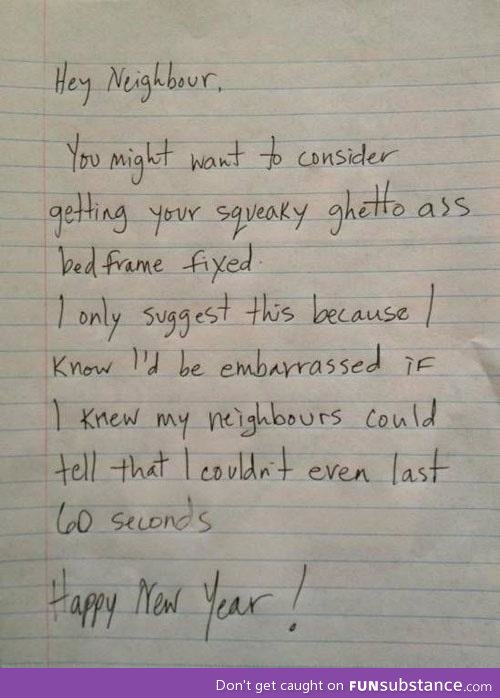 Hey Neighbour,
You might want to consider
getting your squeaky ghetto ass
bedframe fixed.
I only suggest this because I
know I'd be embarrassed if
I knew my neighbours could
tell that I couldn't even last
60 seconds
Happy New Year!
Don't get caught on FUNsubstance.com